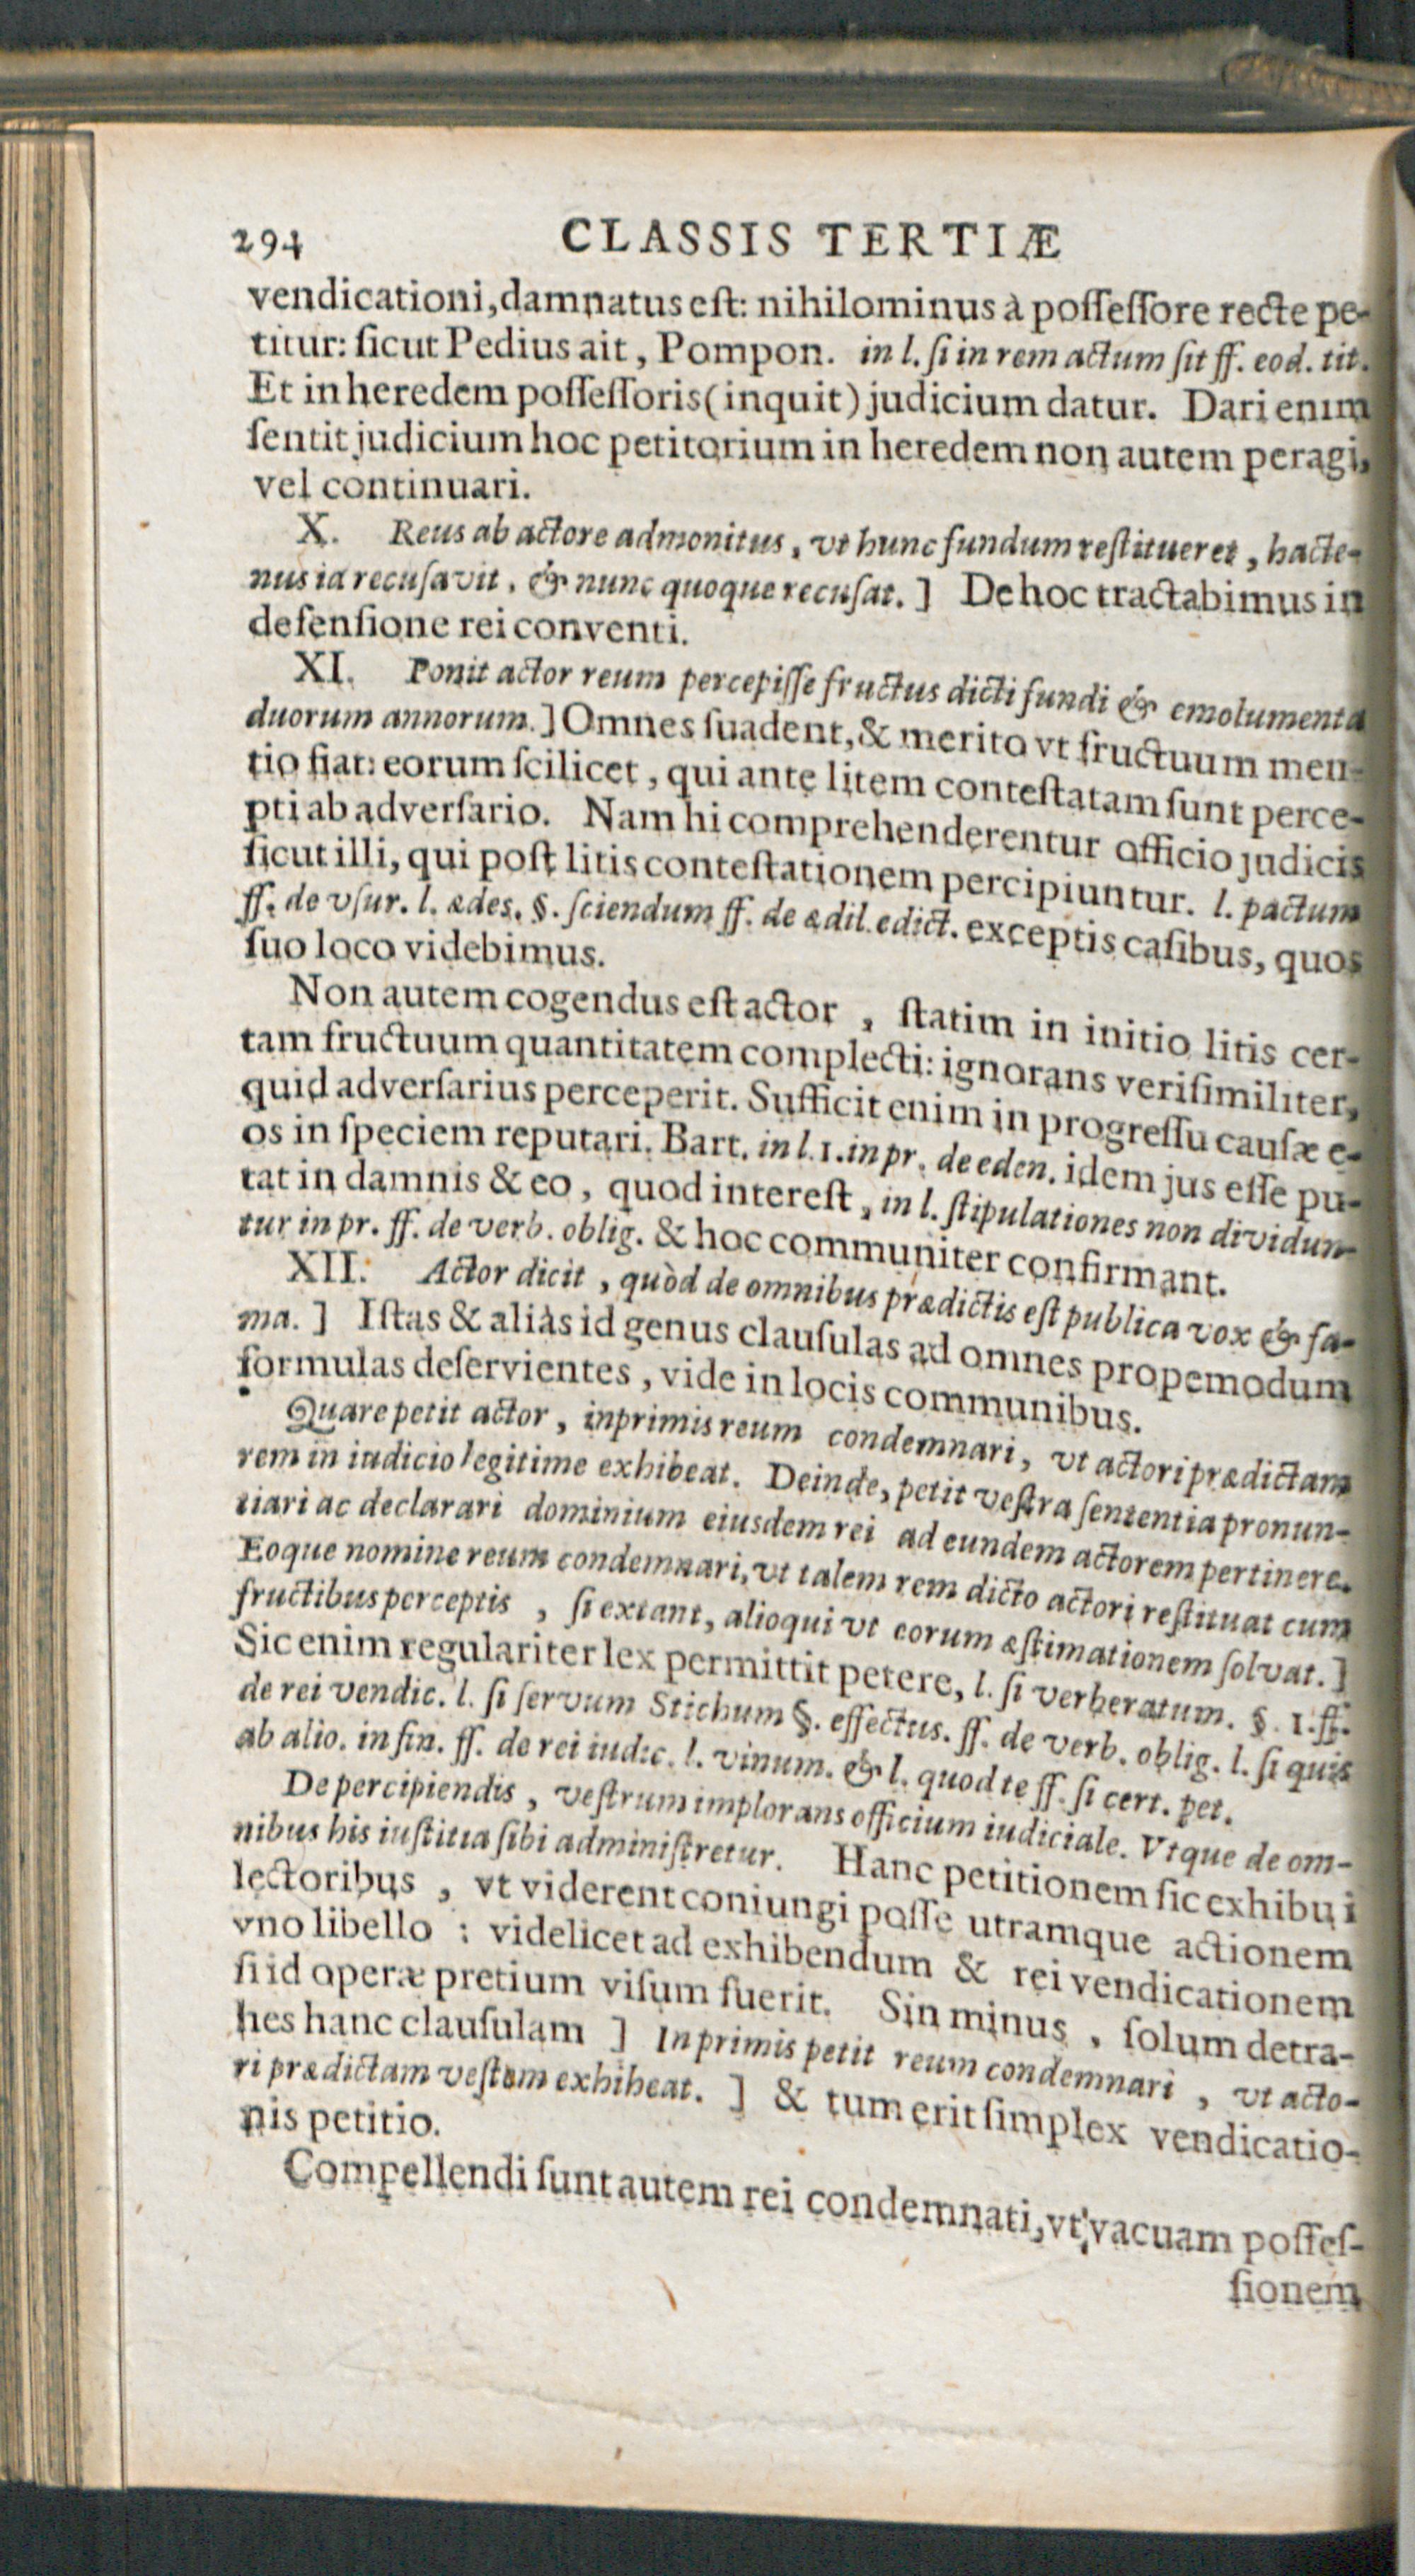 294 CLASSIS TERTIÆ
vendicationi, damnatus eſt: nihilominus à poſſeſſore recte pe-
titur: ſicut Pedius ait, Pompon. in l. ſi in rem actum ſit ff. eod. tit.
Et in heredem poſſeſſoris (inquit) judicium datur. Dari enim
ſentit judicium hoc petitorium in heredem non autem peragi,
vel continuari.
X. Reus ab actore admonitus, vt hunc fundum reſtitueret, hacte-
nus id recuſavit, & nunc quoque recuſat. ] De hoc tractabimus in
defenſione rei conventi.
XI. Ponit actor reum percepiſſe fructus dicti fundi & emolumenta
duorum annorum. ] Omnes ſuadent, & merito vt fructuum men-
tio fiat: eorum ſcilicet, qui ante litem conteſtatam ſunt perce-
pti ab adverſario. Nam hi comprehenderentur officio judicis
ſicut illi, qui poſt litis conteſtationem percipiuntur. l. pactum
ff. de vſur. l. ædes. §. ſciendum ff. de ædil. edict. exceptis caſibus, quos
ſuo loco videbimus.
Non autem cogendus eſt actor, ſtatim in initio litis cer-
tam fructuum quantitatem complecti: ignorans veriſimiliter,
quid adverſarius perceperit. Sufficit enim in progreſſu cauſæ e-
os in ſpeciem reputari. Bart. in l. 1. in pr. de eden. idem jus eſſe pu-
tat in damnis & eo, quod intereſt, in l. ſtipulationes non dividun-
tur in pr. ff. de verb. oblig. & hoc communiter confirmant.
XII. Actor dicit, quòd de omnibus prædictis eſt publica vox & fa-
ma. ] Iſtas & aliàs id genus clauſulas ad omnes propemodum
formulas deſervientes, vide in locis communibus.
Quare petit actor, inprimis reum condemnari, vt actori prædictam
rem in iudicio legitime exhibeat. Deinde, petit veſtra ſententia pronun-
tiari ac declarari dominium eiusdem rei ad eundem actorem pertinere.
Eoque nomine reum condemnari, vt talem rem dicto actori reſtituat cum
fructibus perceptis, ſi extant, alioqui vt eorum æſtimationem ſolvat. ]
Sic enim regulariter lex permittit petere, l. ſi verberatum. §. 1. ff.
de rei vendic. l. ſi ſervum Stichum §. effectus. ff. de verb. oblig. l. ſi quis
ab alio. in fin. ff. de rei iudic. l. vinum. & l. quod te ff. ſi cert. pet.
De percipiendis, veſtrum implorans officium iudiciale. Vtque de om-
nibus his iuſtitia ſibi adminiſtretur. Hanc petitionem ſic exhibui
lectoribus, vt viderent coniungi poſſe utramque actionem
vno libello: videlicet ad exhibendum & rei vendicationem
ſi id operæ pretium viſum fuerit. Sin minus, ſolum detra-
hes hanc clauſulam ] Inprimis petit reum condemnari, vt acto-
ri prædictam veſtem exhibeat. ] & tum erit ſimplex vendicatio-
nis petitio.
Compellendi ſunt autem rei condemnati, vt vacuam poſſeſ-
ſionem